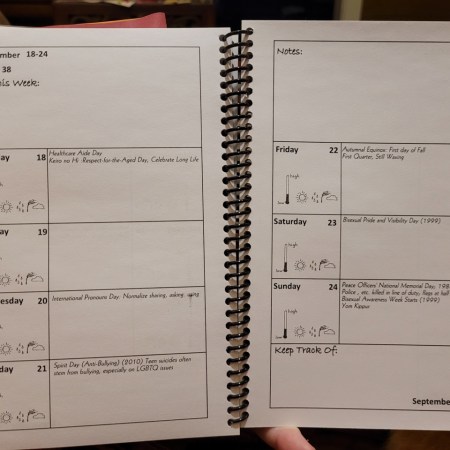 mber 18-24
38
his Week:
ay 18
Healthcare Aide Day
Keiro no Hi: Respect-for-the-Aged Day, Celebrate Long Life
ay 19
esday 20
International Pronouns Day: Normalize sharing, asking,
day 21
Spirit Day (Anti-Bullying) (2010) Teen suicides often
stem from bullying, especially on LGBTQ issues
Notes:
Friday 22
high
low
Autumnal Equinox: First day of Fall
First Quarter, Still Waxing
Saturday 23
high
low
Bisexual Pride and Visibility Day (1999)
Sunday 24
high
low
Peace Officers' National Memorial Day, 198
Police, etc. killed in line of duty, flags at half
Bisexual Awareness Week Starts (1999)
Yom Kippur
Keep Track Of:
September